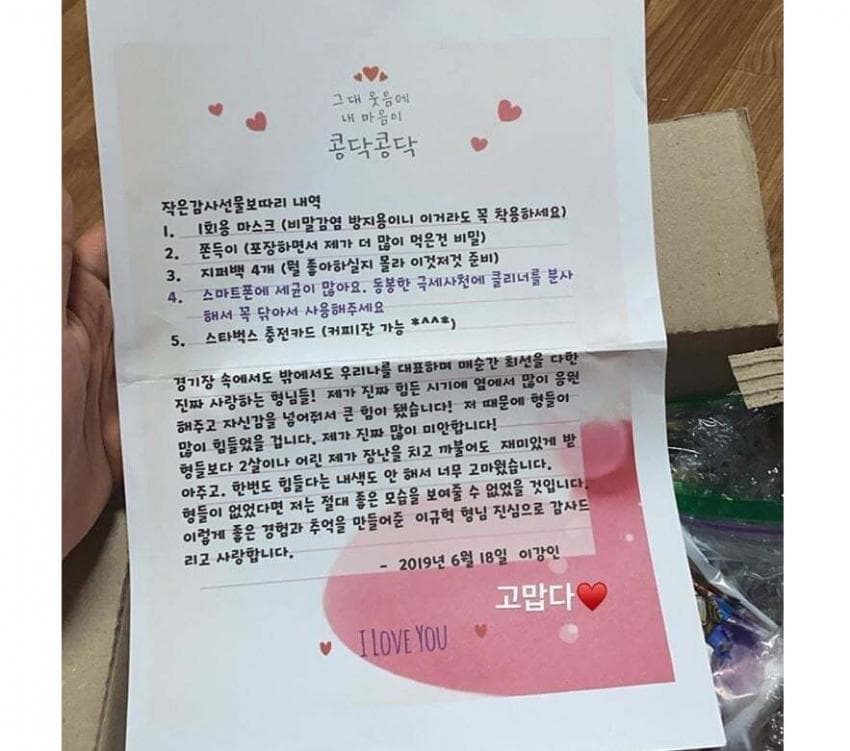 그대 웃음에
내 마음이
콩닥콩닥
작은감사선물보따리 내역
1. 1회용 마스크 (비말감염 방지용이니 이거라도 꼭 착용하세요)
2. 쫀득이 (포장하면서 제가 더 많이 먹은건 비밀)
3. 지퍼백 4개 (뭘 좋아하실지 몰라 이것저것 준비)
4. 스마트폰에 세균이 많아요. 동봉한 극세사천에 클리너를 분사
해서 꼭 닦아서 사용해주세요
5. 스타벅스 충전카드 (커피1잔 가능 *^^*)
경기장 속에서도 밖에서도 우리나를 대표하며 매순간 최선을 다한
진짜 사랑하는 형님들! 제가 진짜 힘든 시기에 옆에서 많이 응원
해주고 자신감을 넣어줘서 큰 힘이 됐습니다! 저 때문에 형들이
많이 힘들었을 겁니다. 제가 진짜 많이 미안합니다!
형들보다 2살이나 어린 제가 장난을 치고 까불어도 재미있게 받
아주고. 한번도 힘들다는 내색도 안 해서 너무 고마웠습니다.
형들이 없었다면 저는 절대 좋은 모습을 보여줄 수 없었을 것입니다.
이렇게 좋은 경험과 추억을 만들어준 이규혁 형님 진심으로 감사드
리고 사랑합니다.
- 2019년 6월 18일 이강인
고맙다♥
I LOVE YOU